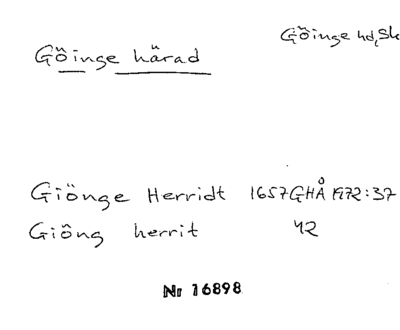 Göinge hd, Sk
Göinge härad
Giönge Herridt 1657 GHÅ 1972:37
Giöng herrit 42
Nr 16898